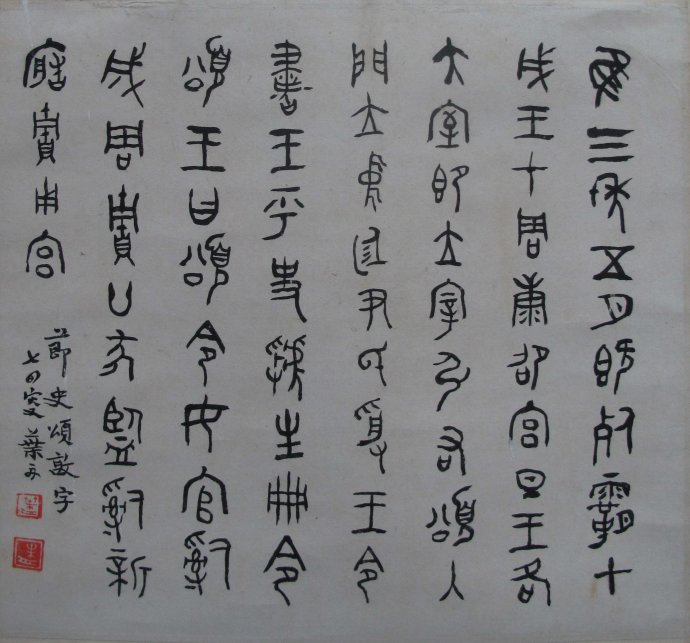 隹三年五月既死霸甲
戌王才周康卲宮旦王各
大室即立宰弘右頌入
門立中廷尹氏受王令
書王乎史虢生冊令
頌王曰頌令女官𤔲
成周貯廿家監𤔲新
寤貯用宮
節史頌敦字
七四叟葉